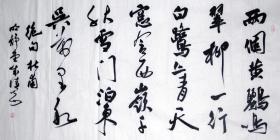 两個黄鸝鳴
翠柳一行
白鷺上青天
窗含西嶺千
秋雪門泊東
吳萬里船
絶句杜甫